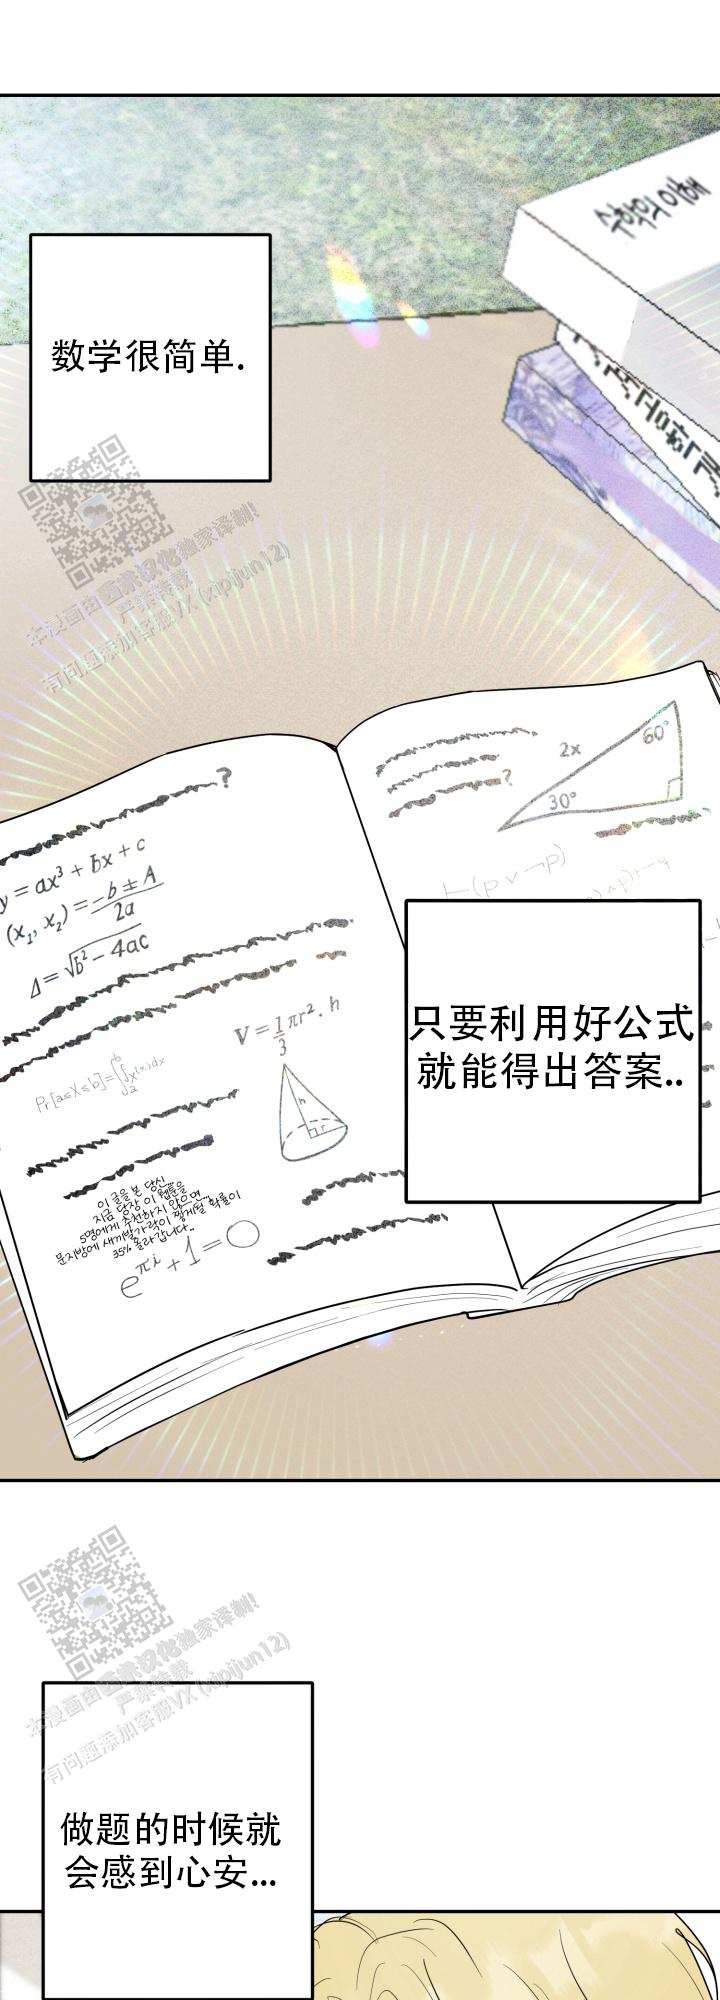 수학의 이해
数学很简单.
本漫画由西米汉化独家译制!
严禁转载
有问题添加客服VX (xipijun12)
?
y = ax³ + bx + c
(x₁, x₂) = -b ± A
2a
Δ = √b² - 4ac
V = 1/3 πr². h
Pr[a≤X≤b]=∫ᵇₐfₓ(x)dx
h
r
이 글을 본 당신
지금 당장 이 웹툰을
5명에게 추천하지 않으면...
문지방에 새끼발가락이 찧게될 확률이
35% 올라갑니다..
e^πi + 1 = 0
?
2x
60°
30°
⊢(p∨¬p)
只要利用好公式
就能得出答案..
本漫画由西米汉化独家译制!
严禁转载
有问题添加客服VX (xipijun12)
做题的时候就
会感到心安...